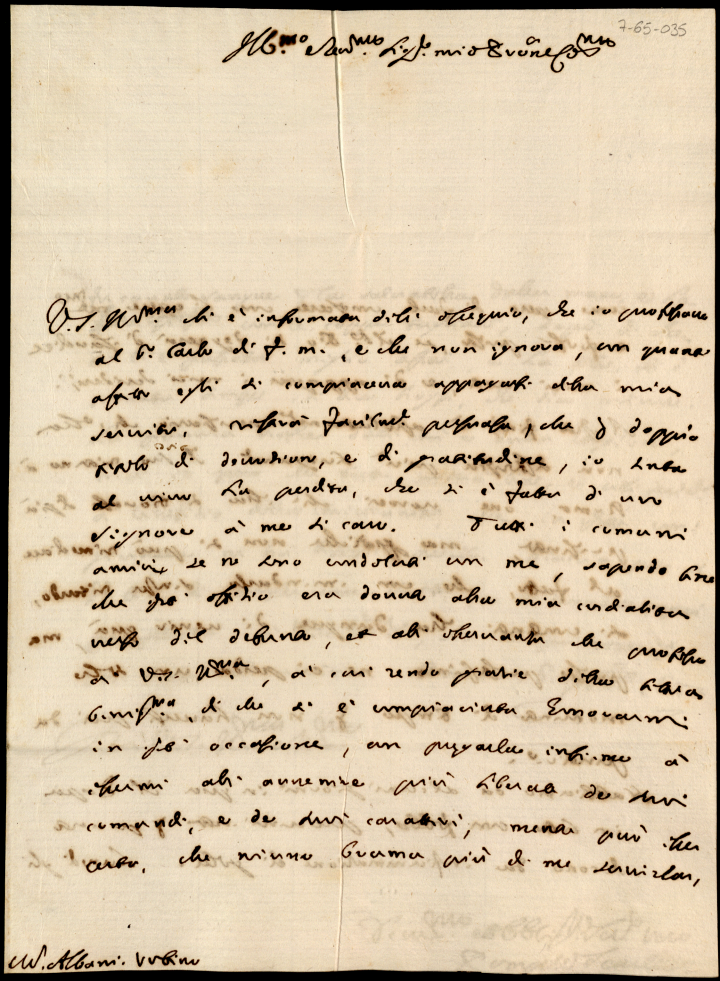 7-65-035
Ill.mo e Rev.mo Sig.re mio P.rone Col.mo
V.S. Ill.ma che è informata dell' ossequio, che io professava
al Sr. Carlo di f. m., e che non ignora, con quanto
affetto egli si compiaceva appagarsi della mia
servitù, resterà facilm.te persuasa, che p doppio
titolo di devotione, e di gratitudine, io senta
al vivo la perdita, che si è fatta di un
Signore à me sì caro. Tutti i comuni
amici se ne sono condoluti con me, sapendo bene
che quest' offitio era dovuto alla mia cordialità
verso del defunto, et all' osservanza che professo
a V.S. Ill.ma, à cui rendo gratie della lettera
benig.ma, di che si è compiaciuta honorarmi
in questa occasione, con pregarla insieme à
essermi all' avvenire più liberale de suoi
comandi, e de suoi caratteri, mentre può esser
certa, che niuno brama più di me servirla,
Mr. Albani. Urbino